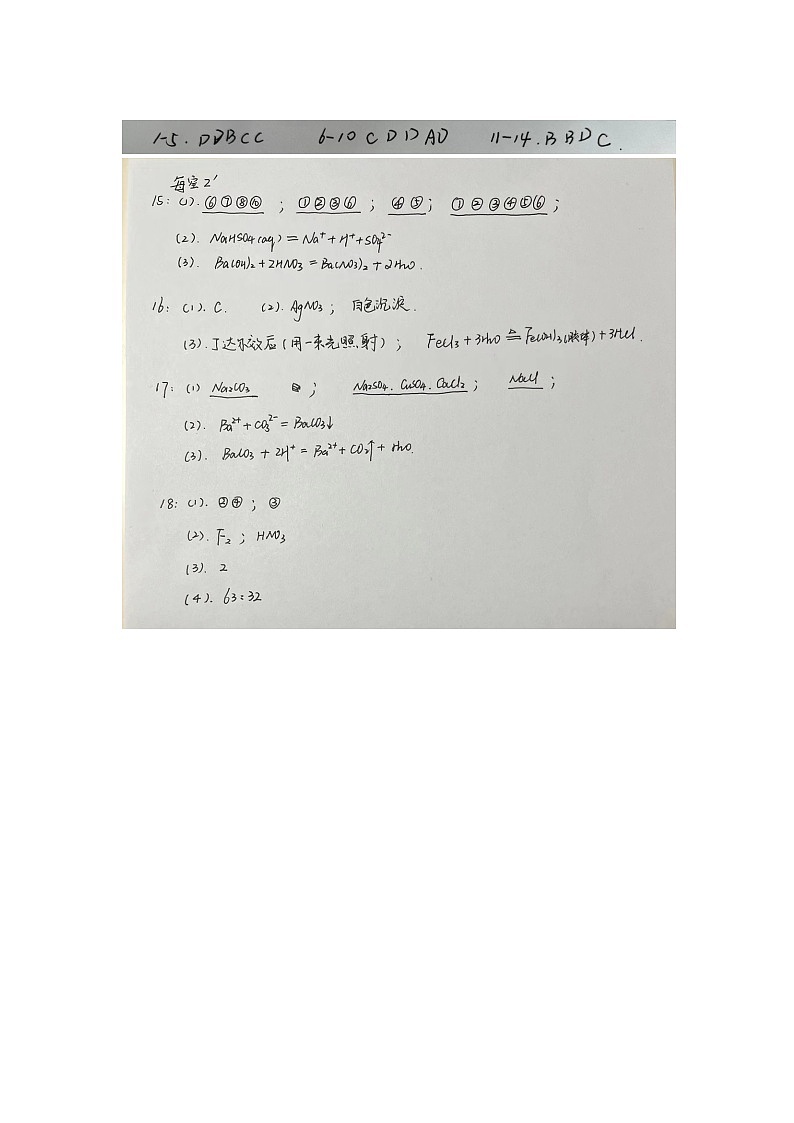 1-5. DDBCC 6-10 CDDAD 11-14. BBDC.
每空2'
15: (1). ⑥⑦⑧⑩ ; ①②③⑥ ; ④⑤ ; ①②③④⑤⑥ ;
(2). NaHSO4(aq) = Na⁺ + H⁺ + SO₄²⁻
(3). Ba(OH)₂ + 2HNO₃ = Ba(NO₃)₂ + 2H₂O.
16: (1). C. (2). AgNO₃ ; 白色沉淀.
(3). 丁达尔效应(用一束光照射) ; FeCl₃ + 3H₂O ≜ Fe(OH)₃(胶体) + 3HCl.
17: (1) Na₂CO₃ ; Na₂SO₄. CuSO₄. CaCl₂ ; NaCl ;
(2). Ba²⁺ + CO₃²⁻ = BaCO₃↓
(3). BaCO₃ + 2H⁺ = Ba²⁺ + CO₂↑ + H₂O.
18: (1). ②④ ; ③
(2). F₂ ; HNO₃
(3). 2
(4). 63:32